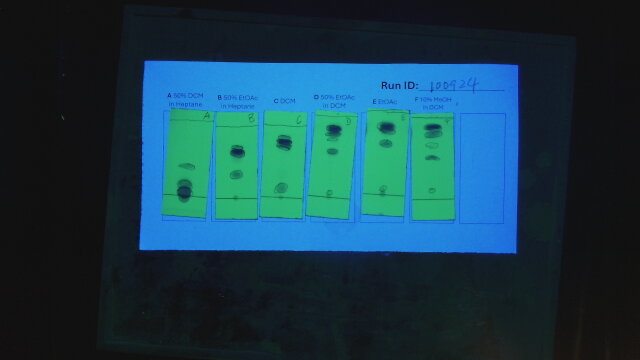 Run ID: 100924
A 50% DCM in Heptane
B 50% EtOAc in Heptane
C DCM
D 50% EtOAc in DCM
E EtOAc
F 10% MeOH in DCM
A B C D E F